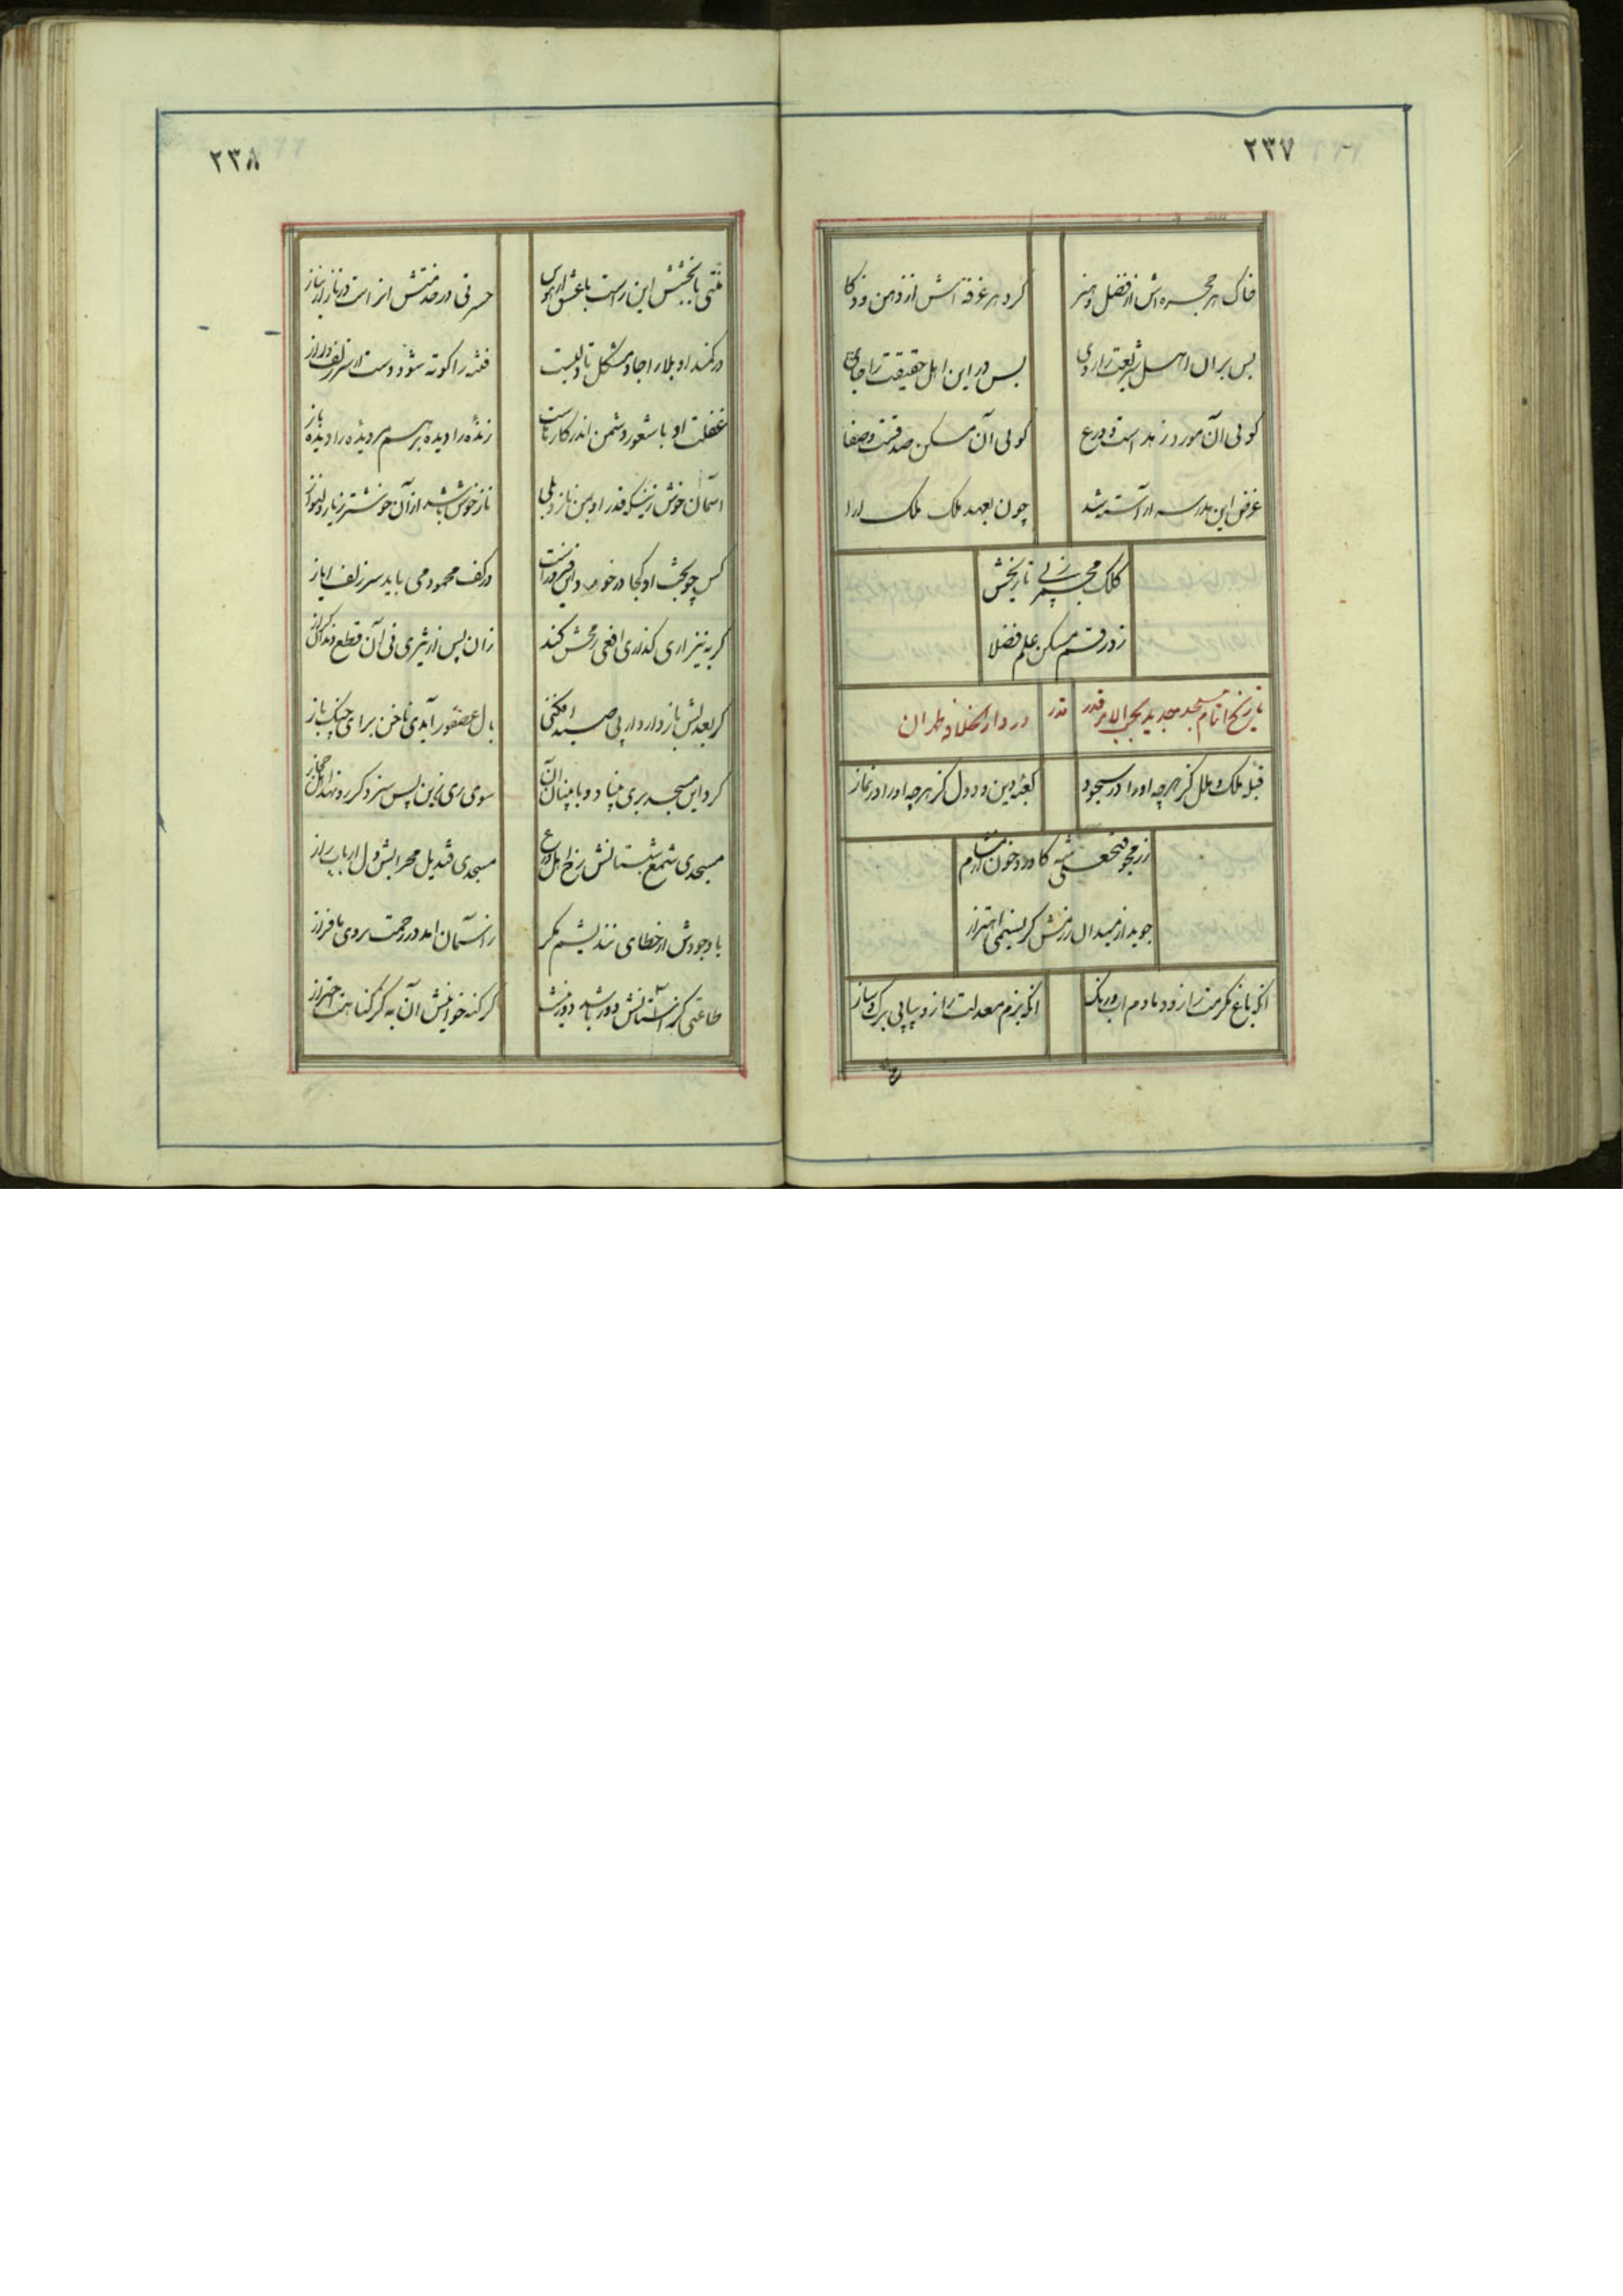 ۲۳۷
خاک هر حجره‌اش از فضل و هنر
کرد هر غرفه‌اش از ذهن و ذکا
بس بر آن اهل شریعت را روی
بس در این اهل حقیقت را جای
گویی آن مورد زهد است و ورع
گویی آن مسکن صدقست و صفا
غرض این مدرسه آراسته شد
چون بعهد ملک ملک آرا
کلک مجمر ز پی تاریخش
زد رقم مسکن علم فضلا
تاریخ اتمام مسجد جدید
قدر
در دارالخلافه طهران
قبله ملک و ملل کز هر چه او را در سجود
کعبه دین و دول کز هر چه او را در نماز
فتحعلی شه کا
جوید از میدان رزمش گر نسیمی اهتزاز
آنکه باغ مکرمت را زو دمادم آب و رنگ
آنکه بزم معدلت را زو پیاپی برک و ساز
۲۳۸
منتی با بخشش این راست با عشق از هوس
حسرتی در خدمتش آنراست در ناز از نیاز
در کمند او بلا را جا و مشکل تا
فتنه را کوته شود دست از سر زلف دراز
غفلت او با شعور دشمن اندر کار ماست
زنده را دیده بر هم مرده را دیده باز
آسمان خوش زینکه قدر او بمن نازد بلی
ناز خوش باشد از آن خوشتر ز یار دلنواز
کس چو بخت او کجا در خورد
در کف محمود می باید سر زلف ایاز
گر به نیزاری گذاری افعی رمحش کند
زان پس از نی آن قطع
گر بعدلش باز دارد از پی صید افکنی
بال عصفور آیدی ناخن برای چنگ باز
کرد این مسجد بری بنیاد و با بنیان آن
سوی ری زین پس سزد گر رو نهد اهل حجاز
مسجدی شمع شبستانش رخ اهل ورع
مسجدی قندیل محرابش دل ارباب راز
با وجودش از خطای نندیشم مگر
ز آسمان آمد در رحمت بروی ما فراز
طاعتی کز آستانش دور باشد دور نیست
گر کند خواهنش آن به کز گناهت احتراز